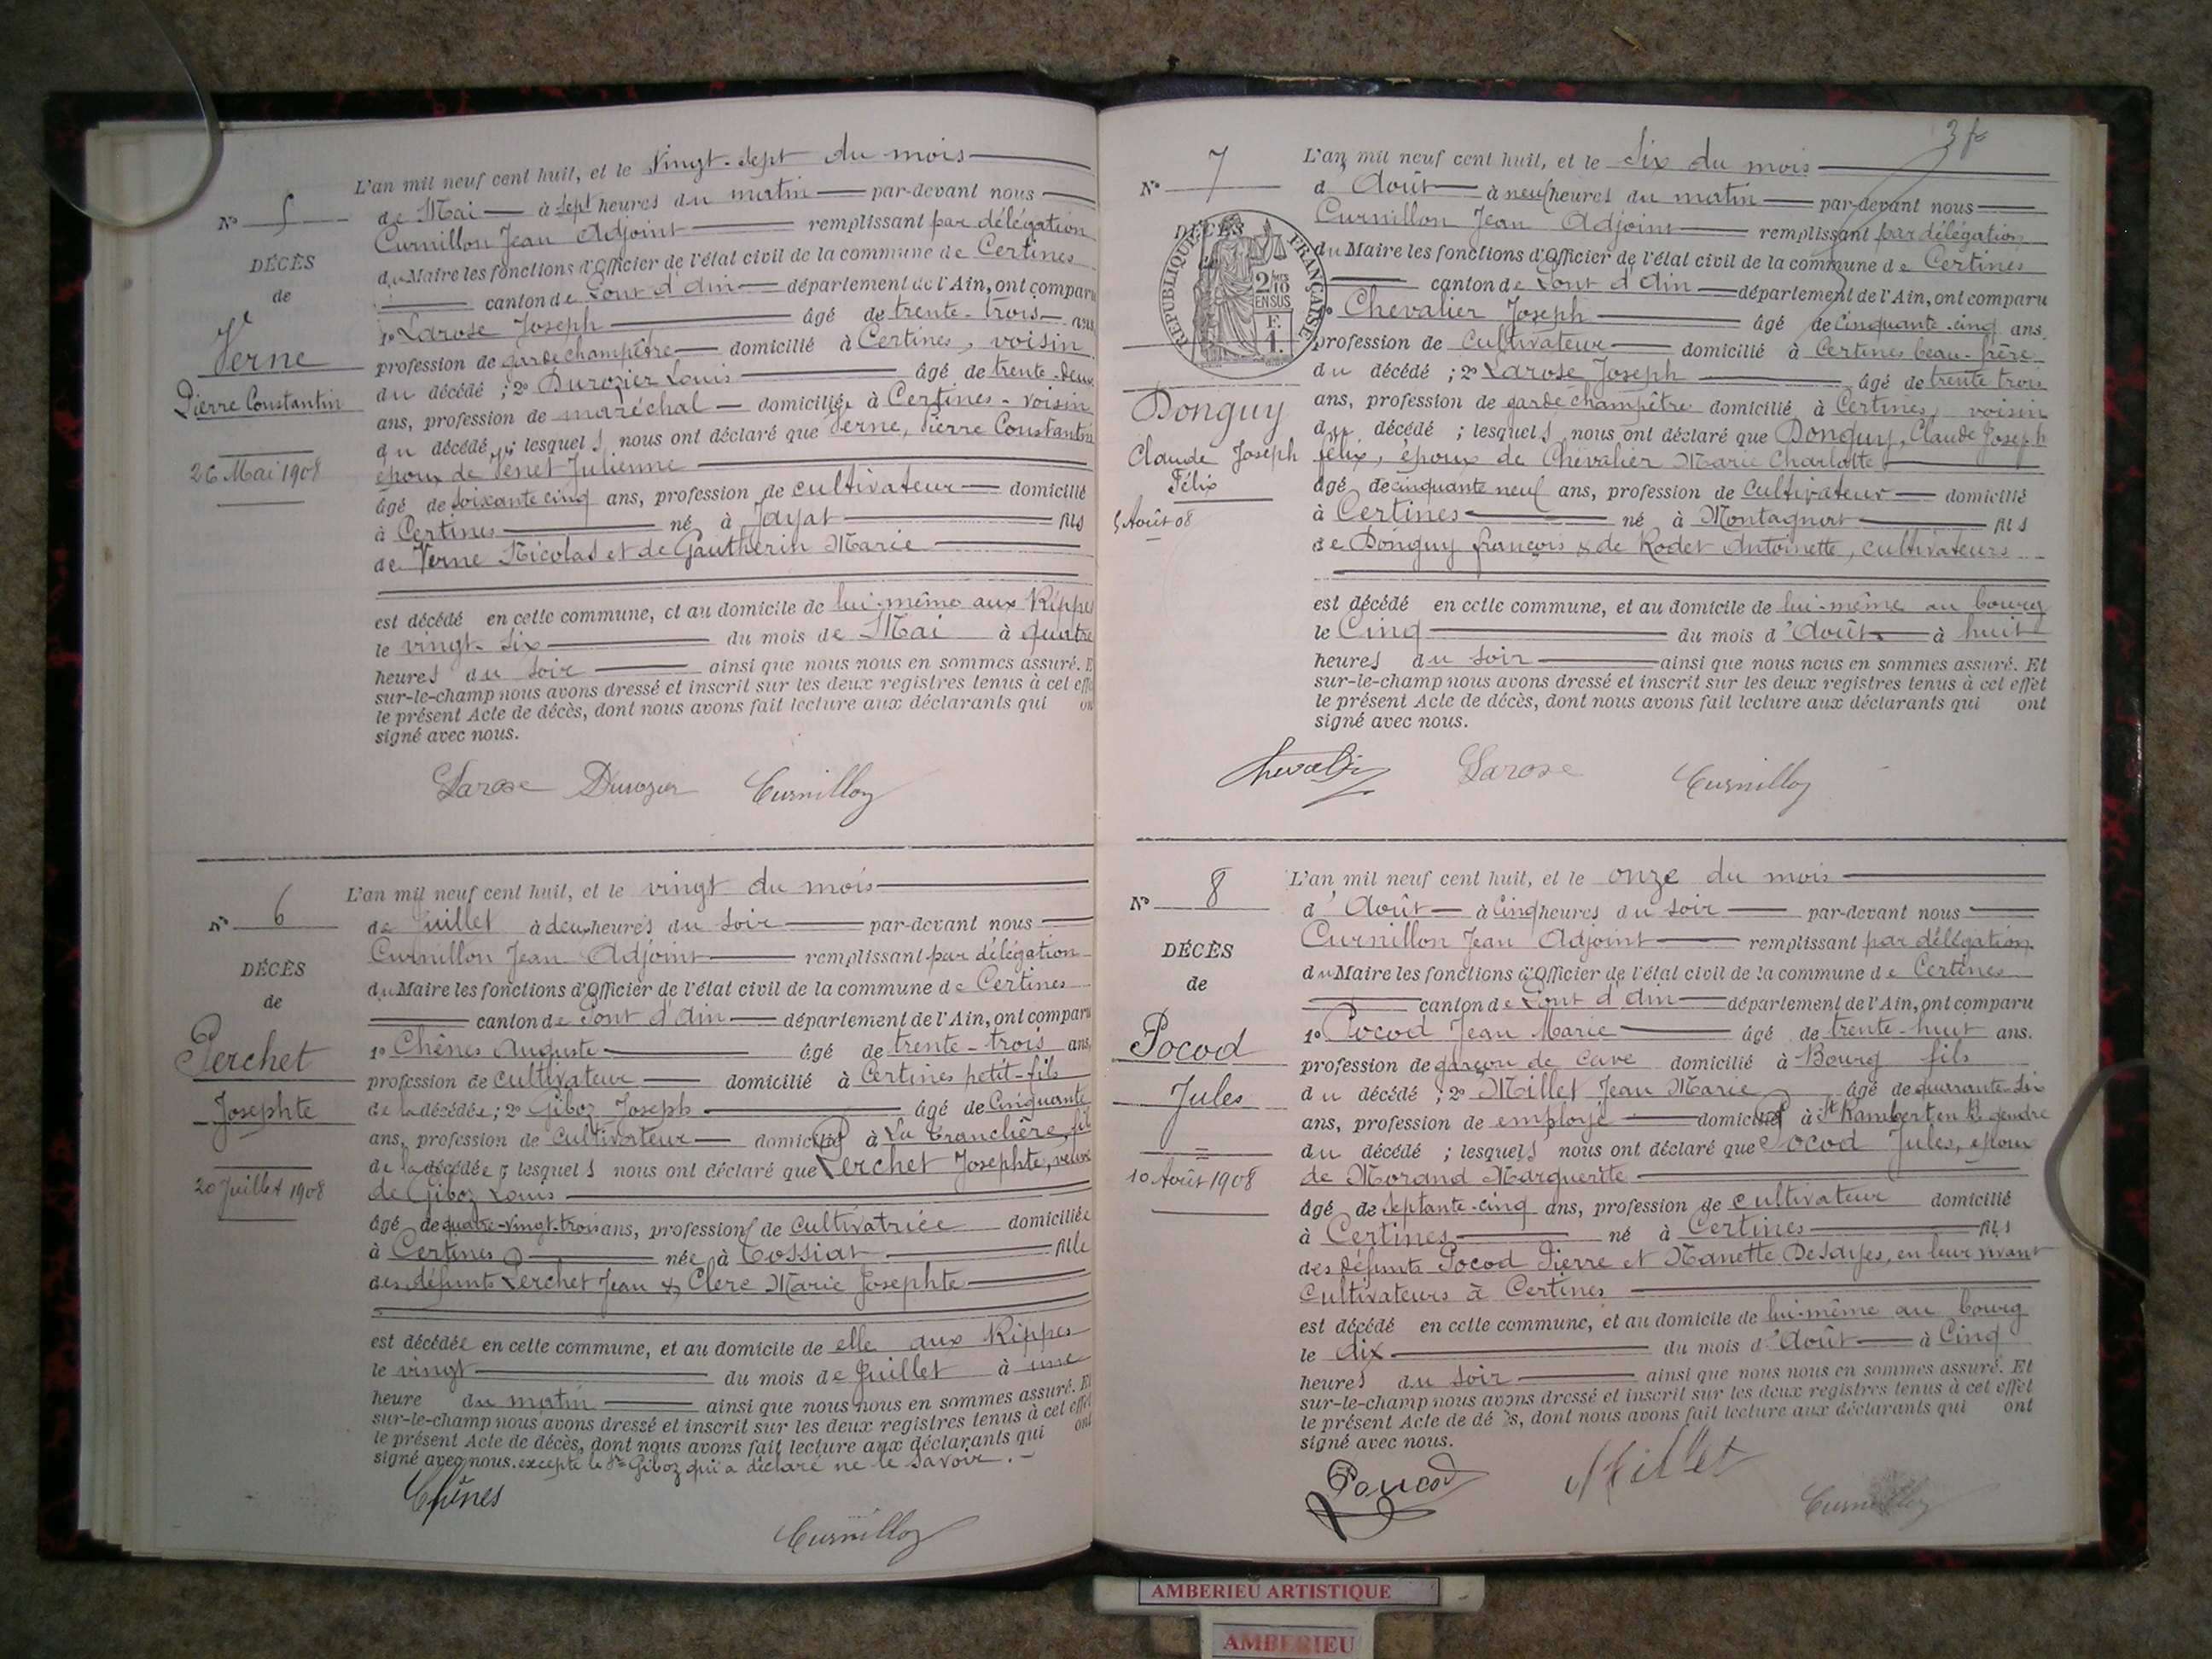 L'an mil neuf cent huit, et le Vingt-Sept du mois
N° 5
de Mai à sept heures du matin par-devant nous
Curnillon Jean Adjoint remplissant par délégation
DÉCÈS
du Maire les fonctions d'Officier de l'état civil de la commune de Certines
de
canton de Pont d'Ain département de l'Ain, ont comparu
Verne
1° Larose Joseph âgé de trente-trois ans
profession de garde champêtre domicilié à Certines, voisin
Pierre Constantin
du décédé ; 2° Durozier Louis âgé de trente-deux
ans, profession de maréchal domicilié à Certines - voisin
du décédé ; lesquels nous ont déclaré que Verne, Pierre Constantin
26 Mai 1908
époux de Penet Julienne
âgé de soixante cinq ans, profession de cultivateur domicilié
à Certines né à Jayat fils
de Verne Nicolas et de Gautherin Marie
est décédé en cette commune, et au domicile de lui-même aux Rippes
le vingt-six du mois de Mai à quatre
heures du soir ainsi que nous nous en sommes assuré. E
sur-le-champ nous avons dressé et inscrit sur les deux registres tenus à cet effe
le présent Acte de décès, dont nous avons fait lecture aux déclarants qui on
signé avec nous.
Larose Durozier Curnillon
L'an mil neuf cent huit, et le vingt du mois
N° 6
de Juillet à deux heures du soir par-devant nous
Curnillon Jean Adjoint remplissant par délégation
DÉCÈS
du Maire les fonctions d'Officier de l'état civil de la commune de Certines
de
canton de Pont d'Ain département de l'Ain, ont comparu
Perchet
1° Chênes Auguste âgé de trente-trois ans,
profession de cultivateur domicilié à Certines petit-fils
Josephte
de la décédée ; 2° Giboz Joseph âgé de Cinquante
ans, profession de cultivateur domicilié à La Tranchère, fils
de la décédée ; lesquels nous ont déclaré que Perchet Josephte, veuve
20 Juillet 1908
de Giboz Louis
âgé de quatre-vingt-trois ans, profession de cultivatrice domiciliée
à Certines née à Tossiat fille
des défunts Perchet Jean & Clerc Marie Josephte
est décédée en cette commune, et au domicile de elle aux Rippes
le vingt du mois de Juillet à une
heure du matin ainsi que nous nous en sommes assuré. Et
sur-le-champ nous avons dressé et inscrit sur les deux registres tenus à cet effet
le présent Acte de décès, dont nous avons fait lecture aux déclarants qui ont
signé avec nous. excepté le Sr Giboz qui a déclaré ne le savoir.
Chênes
Curnillon
3 f
L'an mil neuf cent huit, et le Six du mois
N° 7
d'Août à neuf heures du matin par-devant nous
Curnillon Jean Adjoint remplissant par délégation
DÉCÈS
RÉPUBLIQUE FRANÇAISE
2/10 EN SUS
F. 1.
du Maire les fonctions d'Officier de l'état civil de la commune de Certines
canton de Pont d'Ain département de l'Ain, ont comparu
1° Chevalier Joseph âgé de cinquante-cinq ans,
profession de Cultivateur domicilié à Certines beau-frère
du décédé ; 2° Larose Joseph âgé de trente trois
Donguy
ans, profession de garde champêtre domicilié à Certines, voisin
du décédé ; lesquels nous ont déclaré que Donguy, Claude Joseph
Claude Joseph
Félix
félix, époux de Chevalier Marie Charlotte
âgé de cinquante neuf ans, profession de Cultivateur domicilié
5 Août 08
à Certines né à Montagnat fils
de Donguy françois & de Rodet Antoinette, cultivateurs
est décédé en cette commune, et au domicile de lui-même au bourg
le Cinq du mois d'Août à huit
heures du soir ainsi que nous nous en sommes assuré. Et
sur-le-champ nous avons dressé et inscrit sur les deux registres tenus à cet effet
le présent Acte de décès, dont nous avons fait lecture aux déclarants qui ont
signé avec nous.
Chevalier Larose Curnillon
L'an mil neuf cent huit, et le onze du mois
N° 8
d'Août à Cinq heures du soir par-devant nous
Curnillon Jean Adjoint remplissant par délégation
DÉCÈS
du Maire les fonctions d'Officier de l'état civil de la commune de Certines
de
canton de Pont d'Ain département de l'Ain, ont comparu
Pocod
1° Pocod Jean Marie âgé de trente-huit ans.
profession de garçon de cave domicilié à Bourg fils
Jules
du décédé ; 2° Millet Jean Marie âgé de quarante-six
ans, profession de employé domicilié à St Rambert en B. gendre
du décédé ; lesquels nous ont déclaré que Pocod Jules, époux
10 Août 1908
de Morand Marguerite
âgé de septante-cinq ans, profession de cultivateur domicilié
à Certines né à Certines fils
des défunts Pocod Pierre et Nanette Desayes, en leur vivant
Cultivateurs à Certines
est décédé en cette commune, et au domicile de lui-même au bourg
le dix du mois d'Août à Cinq
heures du soir ainsi que nous nous en sommes assuré. Et
sur-le-champ nous avons dressé et inscrit sur les deux registres tenus à cet effet
le présent Acte de dé s, dont nous avons fait lecture aux déclarants qui ont
signé avec nous.
Poucod Millet
Curnillon
AMBERIEU ARTISTIQUE
AMBERIEU